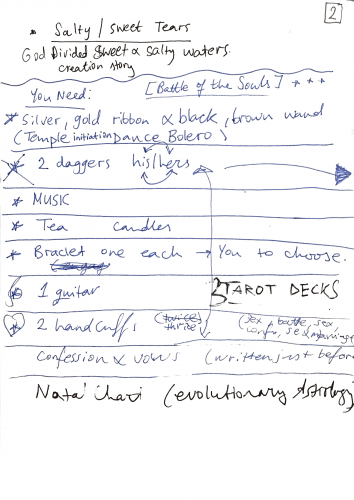 2
• Salty / Sweet Tears
God Divided Sweet & salty waters.
creation story
You Need: [Battle of the Souls] * * *
* Silver, gold ribbon & black, brown wand
(Temple initiation Dance Bolero)
* 2 daggers his/hers
* MUSIC
* Tea candles
* Braclet one each → You to choose.
* 1 guitar 3 TAROT DECKS
* 2 handcuffs (twice thrice) (sex, battle, sex,
sex
Confession & vows (written just before
Natal Chart (evolutionary Astrology)